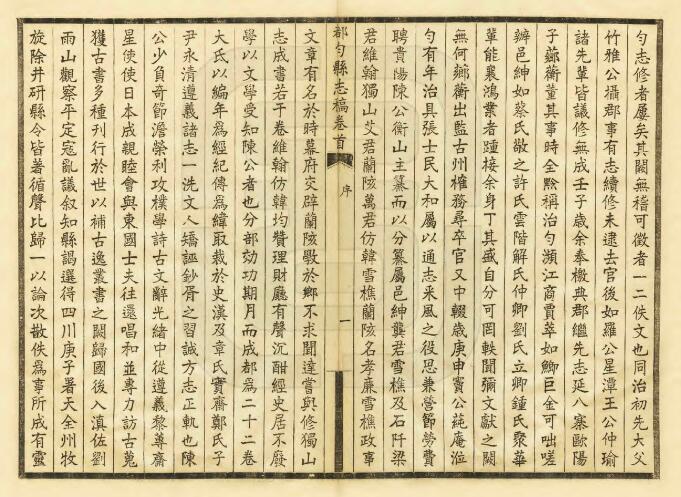 勻志修者屢矣其闕無稽可徵者一二佚文也同治初先大父
竹雅公攝郡事有志續修未逮去官後如羅公星潭王公仲瑜
諸先輩皆議修無成壬子歲余奉檄典郡繼先志延八寨歐陽
子薌蘅董其事時全黔稱治勻瀕江商賈萃如鯽巨金可咄嗟
辦邑紳如蔡氏敬之許氏雲階解氏仲卿劉氏立卿鍾氏聚華
輩能襄鴻業者踵接余身丁其盛自分可罔軼聞彌文獻之闕
無何薌蘅出監古州榷務尋卒官又中輟歲庚申竇公蒓庵涖
勻有年治具張士民大和屬以通志采風之役思兼營節勞費
聘貴陽陳公衡山主纂而以分纂屬邑紳龔君雪樵及石阡梁
君維翰獨山艾君蘭陔萬君仿韓雪樵蘭陔名孝廉雪樵政事
都勻縣志稿卷首
序
一
文章有名於時幕府交辟蘭陔斆於鄉不求聞達嘗與修獨山
志成書若干卷維翰仿韓均贊理財廳有聲沉酣經史居不廢
學以文學受知陳公者也分部効功期月而成都爲二十二卷
大氐以編年爲經紀傳爲緯取裁於史漢及章氏實齋鄭氏子
尹永清遵義諸志一洗文人矯誣鈔胥之習誠方志正軌也陳
公少負奇節澹榮利攻樸學詩古文辭光緒中從遵義黎蓴齋
星使使日本成親睦會與東國士夫往還唱和並專力訪古蒐
獲古書多種刊行於世以補古逸叢書之闕歸國後入滇佐劉
雨山觀察平定寇亂議叙知縣謁選得四川庚子署天全州牧
旋除井研縣令皆著循聲比歸一以論次散佚爲事所成有靈